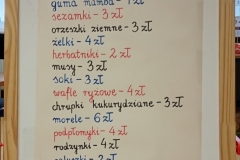 guma mamba - 1 zł
sezamki - 3 zł
orzeszki ziemne - 3 zł
żelki - 4 zł
herbatniki - 2 zł
musy - 3 zł
soki - 3 zł
wafle ryżowe - 4 zł
chrupki kukurydziane - 3 zł
morele - 6 zł
podpłomyki - 4 zł
rodzynki - 4 zł